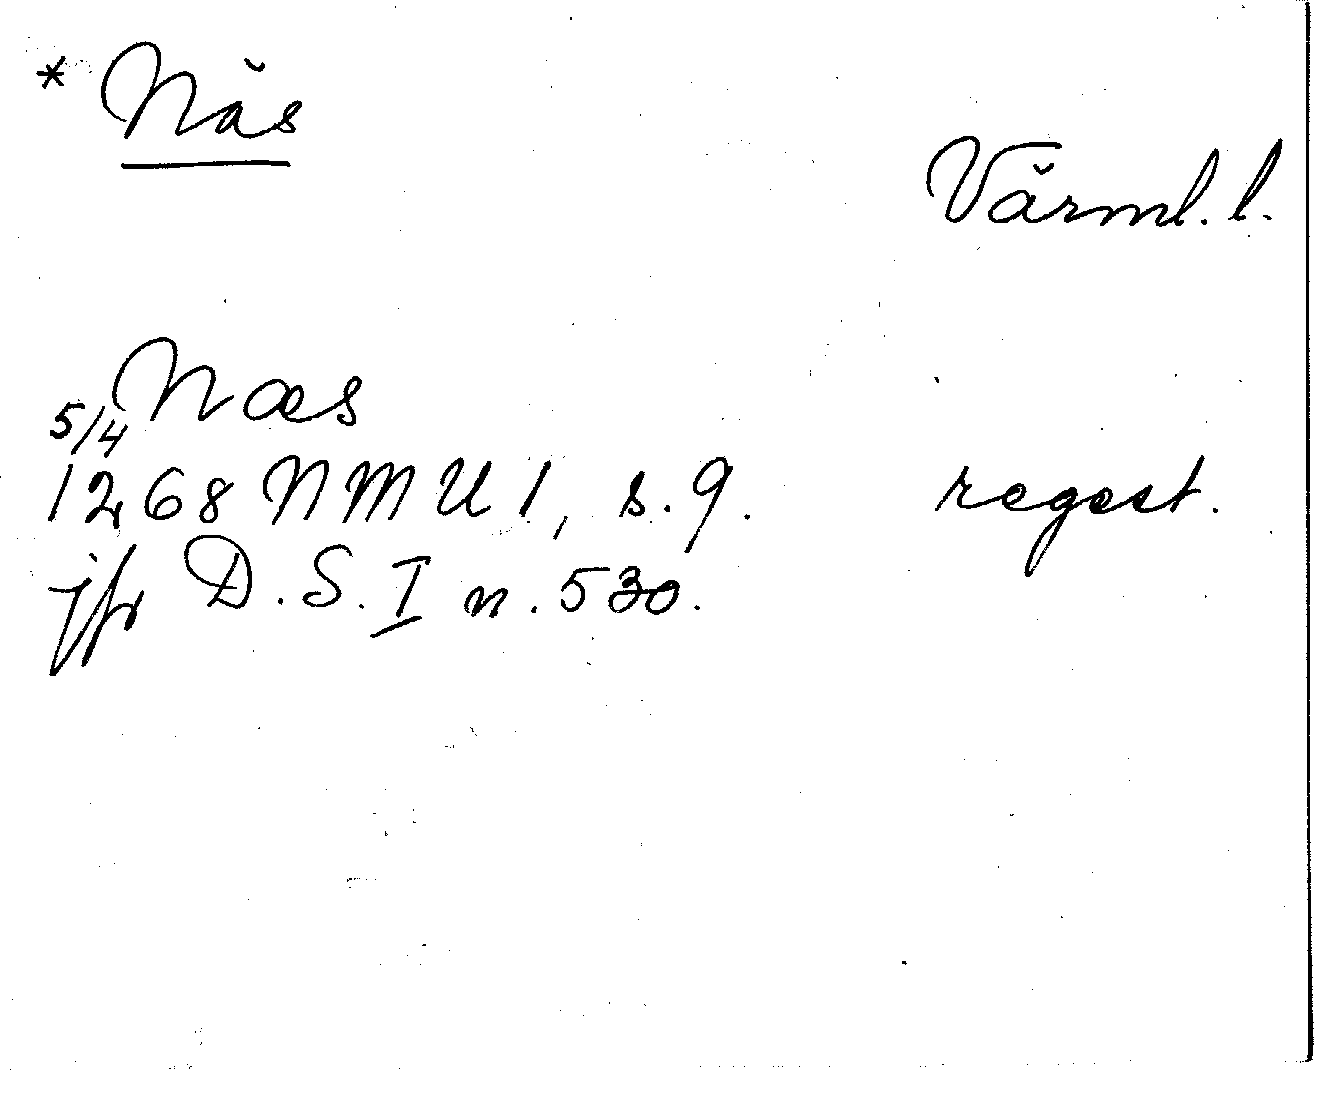 * Näs
Värml. l.
Næs
5/4
1268 NMU 1, s. 9. regest.
jfr D. S. I n. 530.